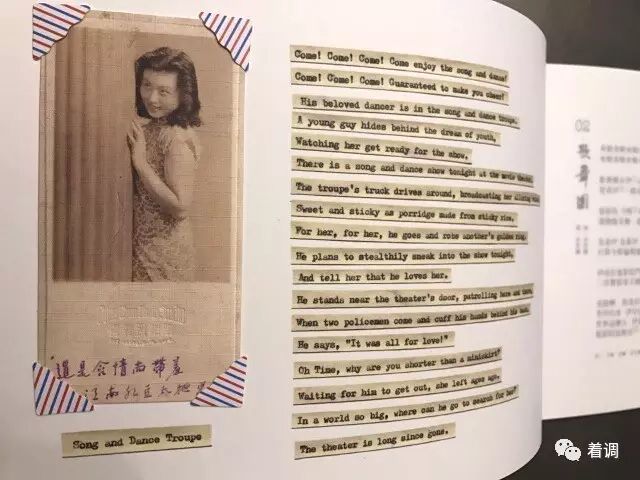 還是含情而帶羞
Song and Dance Troupe
Come! Come! Come! Come enjoy the song and dance!
Come! Come! Come! Guaranteed to make you cheer!
His beloved dancer is in the song and dance troupe.
A young guy hides behind the dream of youth,
Watching her get ready for the show.
There is a song and dance show tonight at the movie
The troupe's truck drives around, broadcasting her alluring
Sweet and sticky as porridge made from sticky rice.
For her, for her, he goes and robs another's golden ring.
He plans to stealthily sneak into the show tonight,
And tell her that he loves her.
He stands near the theater's door, patrolling here and there,
When two policemen come and cuff his hands behind his back.
He says, "It was all for love!"
Oh Time, why are you shorter than a miniskirt?
Waiting for him to get out, she left ages ago.
In a world so big, where can he go to search for her?
The theater is long since gone.
02
歌舞團
着调